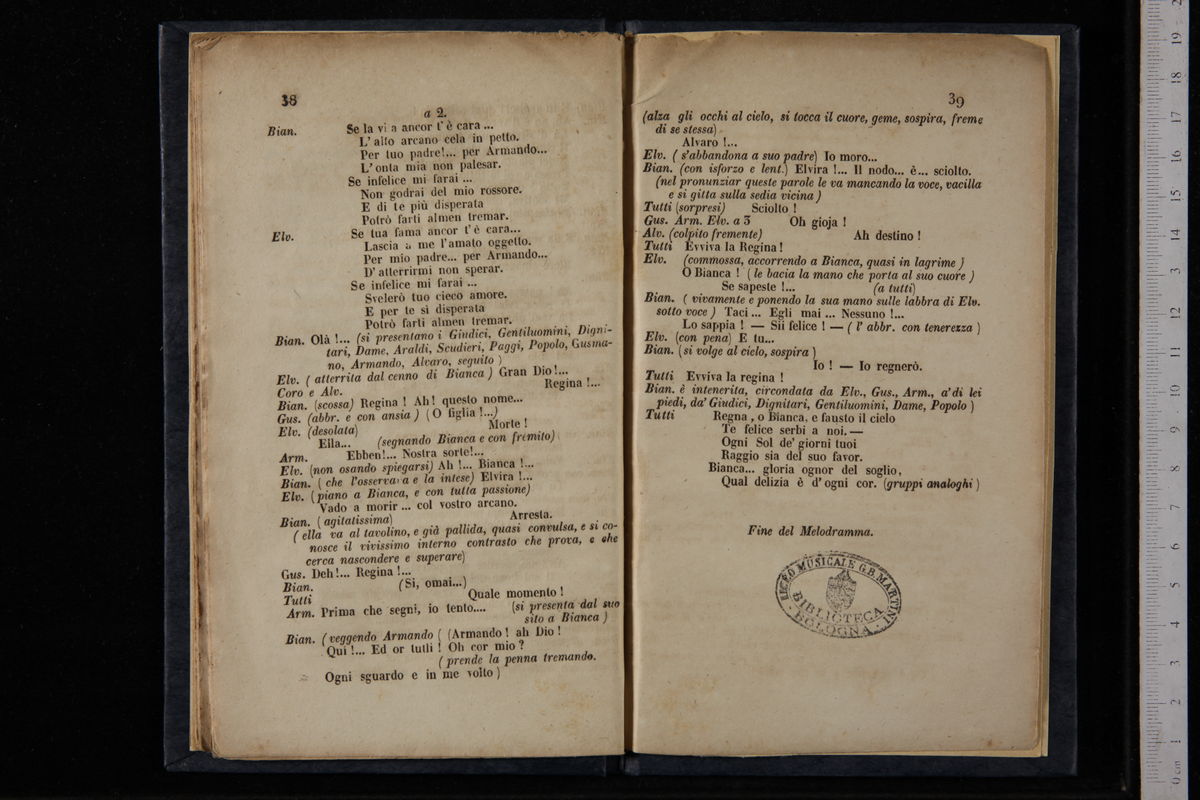 38
a 2.
Bian. Se la vi a ancor t'è cara ...
L'alto arcano cela in petto.
Per tuo padre!... per Armando...
L'onta mia non palesar.
Se infelice mi farai ...
Non godrai del mio rossore.
E di te più disperata
Potrò farti almen tremar.
Elv. Se tua fama ancor t'è cara...
Lascia a me l'amato oggetto.
Per mio padre... per Armando...
D'atterrirmi non sperar.
Se infelice mi farai ...
Svelerò tuo cieco amore.
E per te si disperata
Potrò farti almen tremar.
Bian. Olà !... (si presentano i Giudici, Gentiluomini, Digni-
tari, Dame, Araldi, Scudieri, Paggi, Popolo, Gusma-
no, Armando, Alvaro, seguito )
Elv. ( atterrita dal cenno di Bianca ) Gran Dio !...
Coro e Alv. Regina !...
Bian. (scossa) Regina ! Ah! questo nome...
Gus. (abbr. e con ansia ) ( O figlia !...)
Elv. (desolata) Morte !
Ella... (segnando Bianca e con fremito)
Arm. Ebben!... Nostra sorte!...
Elv. (non osando spiegarsi) Ah !... Bianca !...
Bian. ( che l'osservava e la intese) Elvira !...
Elv. (piano a Bianca, e con tutta passione)
Vado a morir ... col vostro arcano.
Bian. ( agitatissima) Arresta.
( ella va al tavolino, e già pallida, quasi convulsa, e si co-
nosce il vivissimo interno contrasto che prova, e che
cerca nascondere e superare)
Gus. Deh!... Regina !...
Bian. (Si, omai...)
Tutti Quale momento !
Arm. Prima che segni, io tento.... (si presenta dal suo
sito a Bianca )
Bian. ( veggendo Armando ( (Armando ! ah Dio !
Qui !... Ed or tutti ! Oh cor mio ?
( prende la penna tremando.
Ogni sguardo e in me volto )
39
(alza gli occhi al cielo, si tocca il cuore, geme, sospira, freme
di se stessa)
Alvaro !...
Elv. ( s'abbandona a suo padre) Io moro...
Bian. (con isforzo e lent.) Elvira !... Il nodo... è... sciolto.
(nel pronunziar queste parole le va mancando la voce, vacilla
e si gitta sulla sedia vicina )
Tutti (sorpresi) Sciolto !
Gus. Arm. Elv. a 3 Oh gioja !
Alv. (colpito fremente) Ah destino !
Tutti Evviva la Regina !
Elv. (commossa, accorrendo a Bianca, quasi in lagrime )
O Bianca ! ( le bacia la mano che porta al suo cuore )
Se sapeste !... (a tutti)
Bian. ( vivamente e ponendo la sua mano sulle labbra di Elv.
sotto voce ) Taci ... Egli mai ... Nessuno !...
Lo sappia ! — Sii felice ! — ( l' abbr. con tenerezza )
Elv. (con pena) E tu...
Bian. (si volge al cielo, sospira )
Io ! — Io regnerò.
Tutti Evviva la regina !
Bian. è intenerita, circondata da Elv., Gus., Arm., a' di lei
piedi, da' Giudici, Dignitari, Gentiluomini, Dame, Popolo )
Tutti Regna, o Bianca, e fausto il cielo
Te felice serbi a noi. —
Ogni Sol de' giorni tuoi
Raggio sia del suo favor.
Bianca... gloria ognor del soglio,
Qual delizia è d' ogni cor. (gruppi analoghi )
Fine del Melodramma.
LICEO MUSICALE G.B. MARTINI
BIBLIOTECA
BOLOGNA
0 cm 1 2 3 4 5 6 7 8 9 10 11 12 13 14 15 16 17 18 19 2